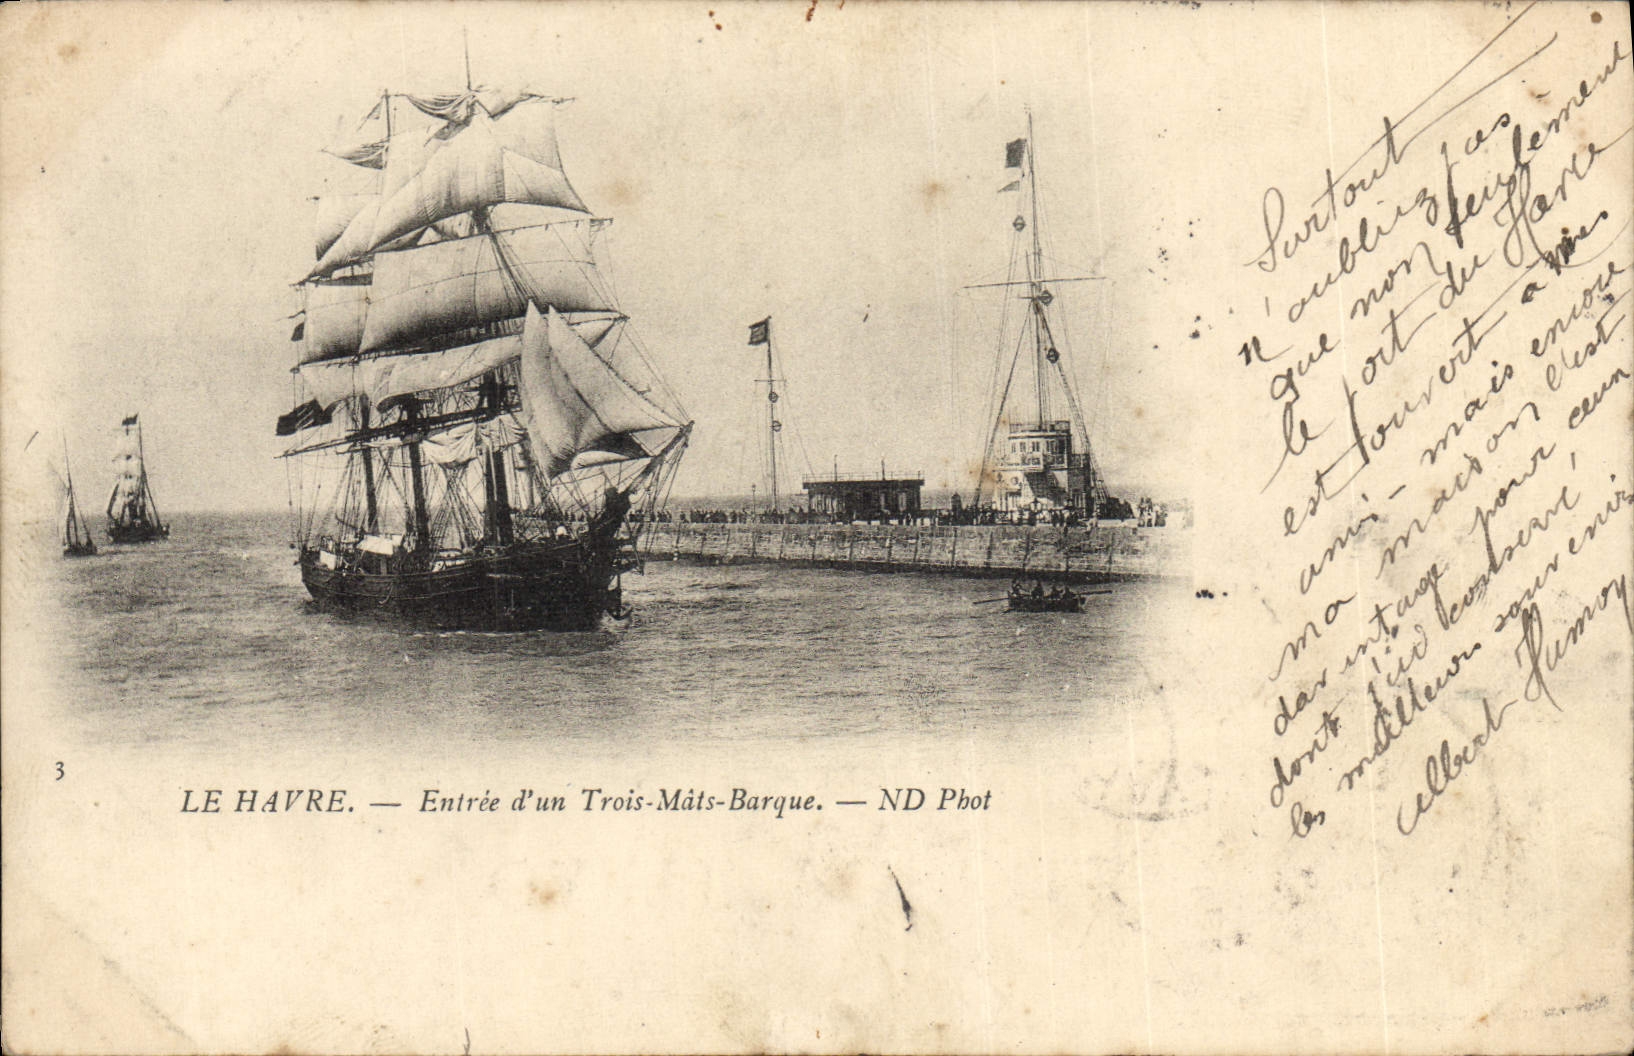 Surtout
n'oubliez pas
que non seulement
le port du Havre
est ouvert à mes
amis - mais encore
ma maison c'est
davantage pour ceux
dont j'ai conservé,
les meilleurs souvenirs
Albert Hamoy
3
LE HAVRE. — Entrée d'un Trois-Mâts-Barque. — ND Phot